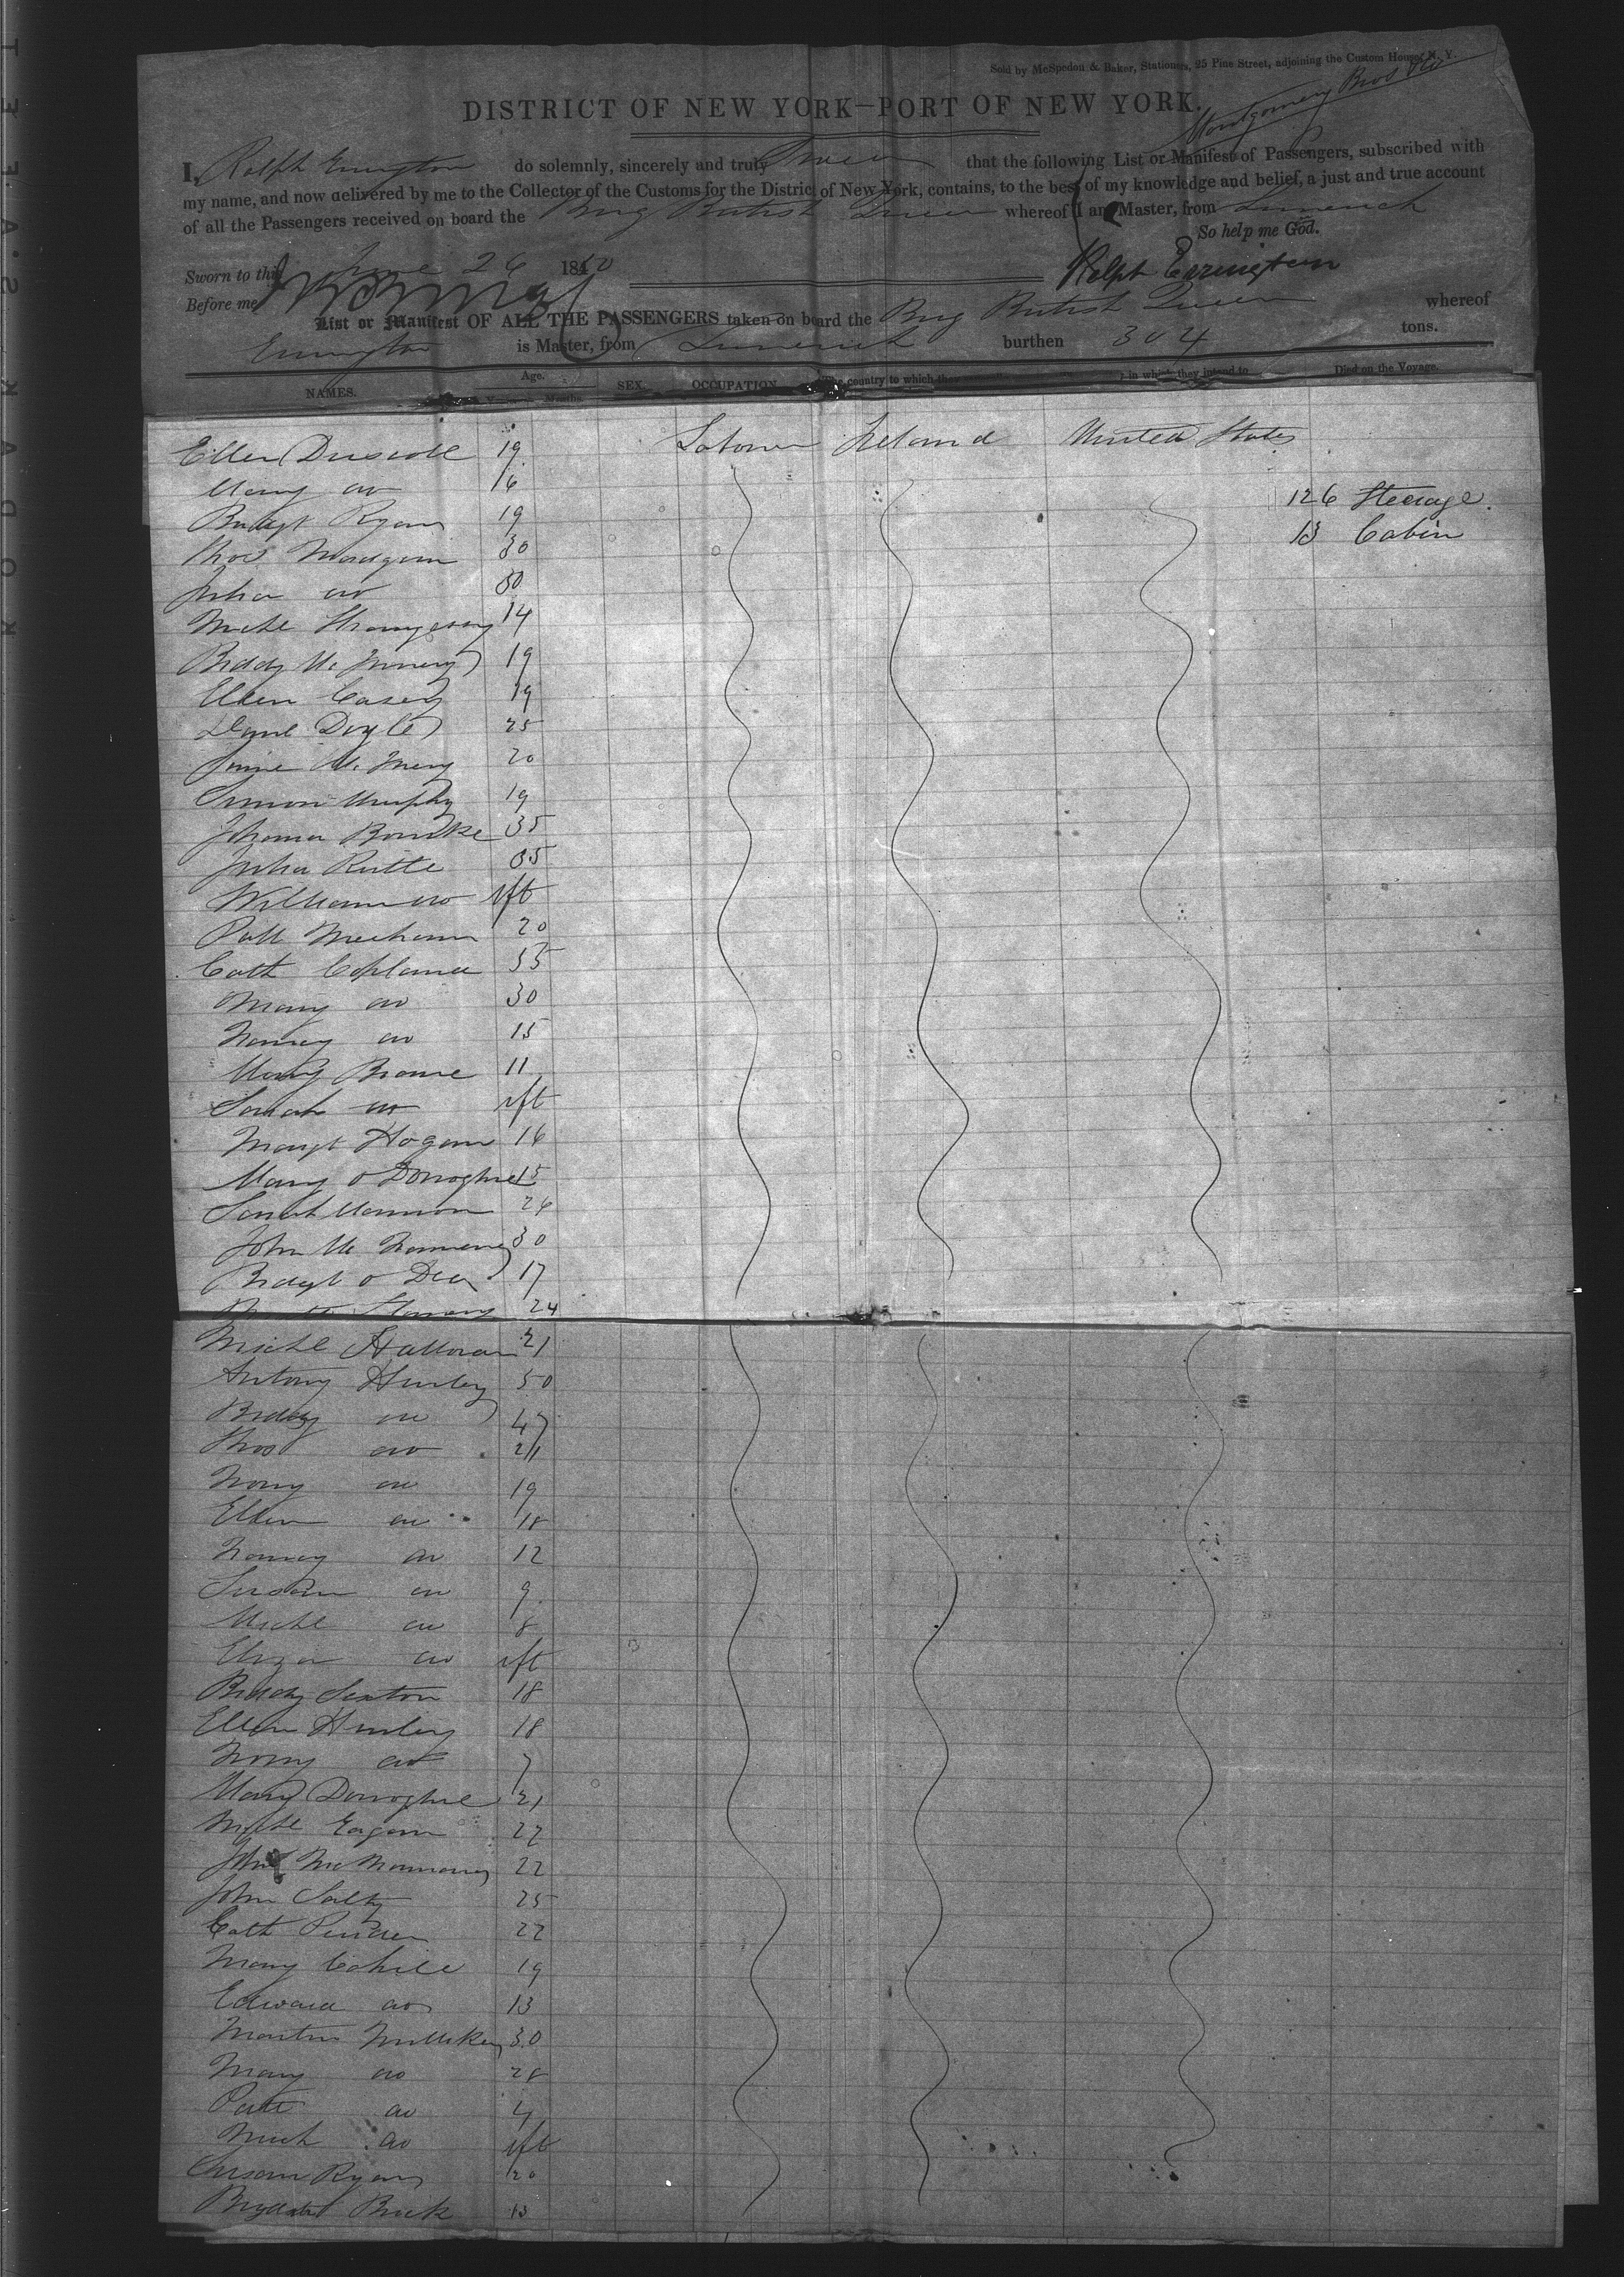 Sold by McSpedon & Baker, Stationers, 25 Pine Street, adjoining the Custom House, N. Y.
Montgomery Bros
DISTRICT OF NEW YORK—PORT OF NEW YORK.
I, Ralph Errington do solemnly, sincerely and truly Swear that the following List or Manifest of Passengers, subscribed with
my name, and now delivered by me to the Collector of the Customs for the District of New York, contains, to the best of my knowledge and belief, a just and true account
of all the Passengers received on board the Brig British Queen whereof I am Master, from Limerick
So help me God.
Sworn to this June 26 1850 Ralph Errington
Before me
List or Manifest OF ALL THE PASSENGERS taken on board the Brig British Queen whereof
Errington is Master, from Limerick burthen 304 tons.
NAMES. Age. SEX. OCCUPATION country to which they in which they intend to Died on the Voyage.
Months.
Ellen Driscoll 19 Laborer Ireland United States
Mary do 16 126 Steerage.
Bridgt Ryan 19 13 Cabin
Thos 30
Julia do 30
Michl 14
Biddy Mc 19
Ellen Casey 19
Danl Doyle 25
Mc 20
Simon Murphy 19
Johanna Bourke 35
Julia 35
William do ift
Patt Meehan 20
Cath Copland 35
Mary do 30
Nancy do 15
Mary Browne 11
Sarah do ift
Margt Hogan 16
Mary o Donoghue 15
Sarah 26
John Mc Namara 30
Bridgt o Dea 17
24
Michl Halloran 21
Antony Hurley 50
Biddy do 47
Thos do 21
Nony do 19
Ellen do 18
Nancy do 12
Susan do 9
Michl do 8
Eliza do ift
Biddy Sexton 18
Ellen Hurley 18
Nony do 7
Mary Donoghue 21
Michl Eagan 22
John Mc Namara 22
John 25
Cath 22
Mary Cahill 19
Edward do 13
Martin Mulliken 30
Mary do 28
Patt do 4
Mich do ift
Susan Ryan 20
Buck 13